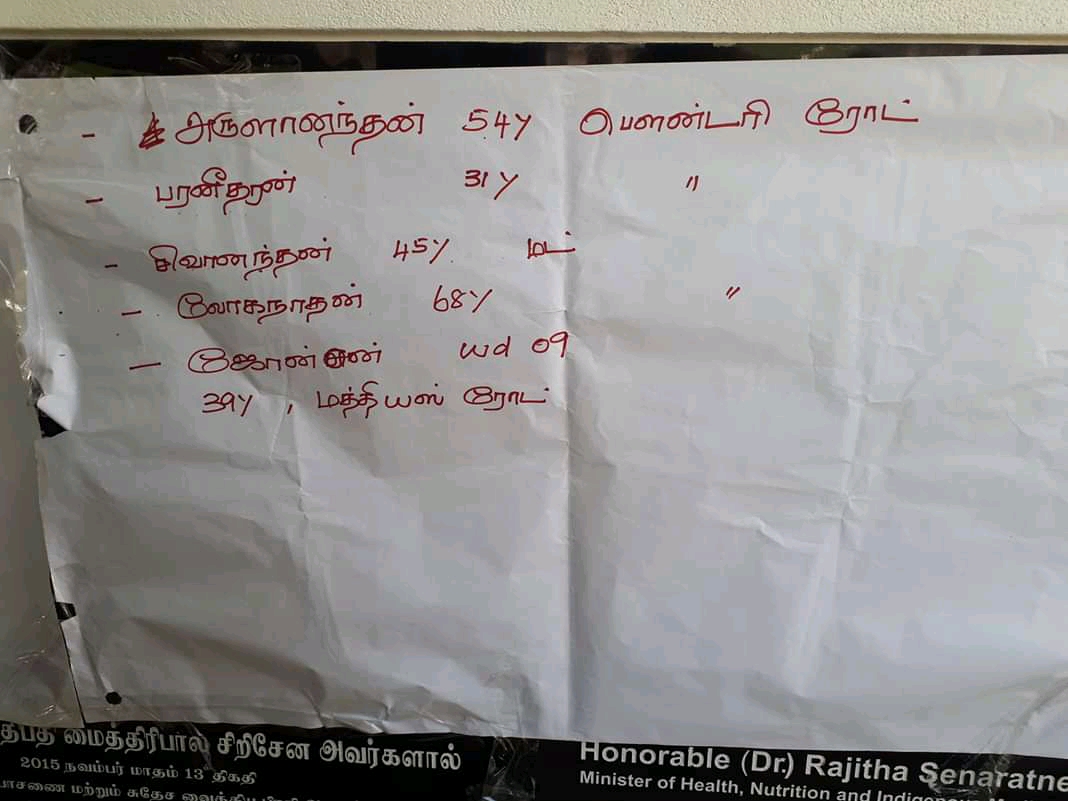 - அருளானந்தன் 54y பௌண்டரி ரோட்
- பரணீதரன் 31y "
- சிவானந்தன் 45y. மட்
- லோகநாதன் 68y "
- ஜோன்சன் wd 09
39y, மத்தியஸ் ரோட்
மைத்திரிபால சிறிசேன அவர்களால்
2015 நவம்பர் மாதம் 13 திகதி
மற்றும் சுதேச
Honorable (Dr.) Rajitha Senaratne
Minister of Health, Nutrition and